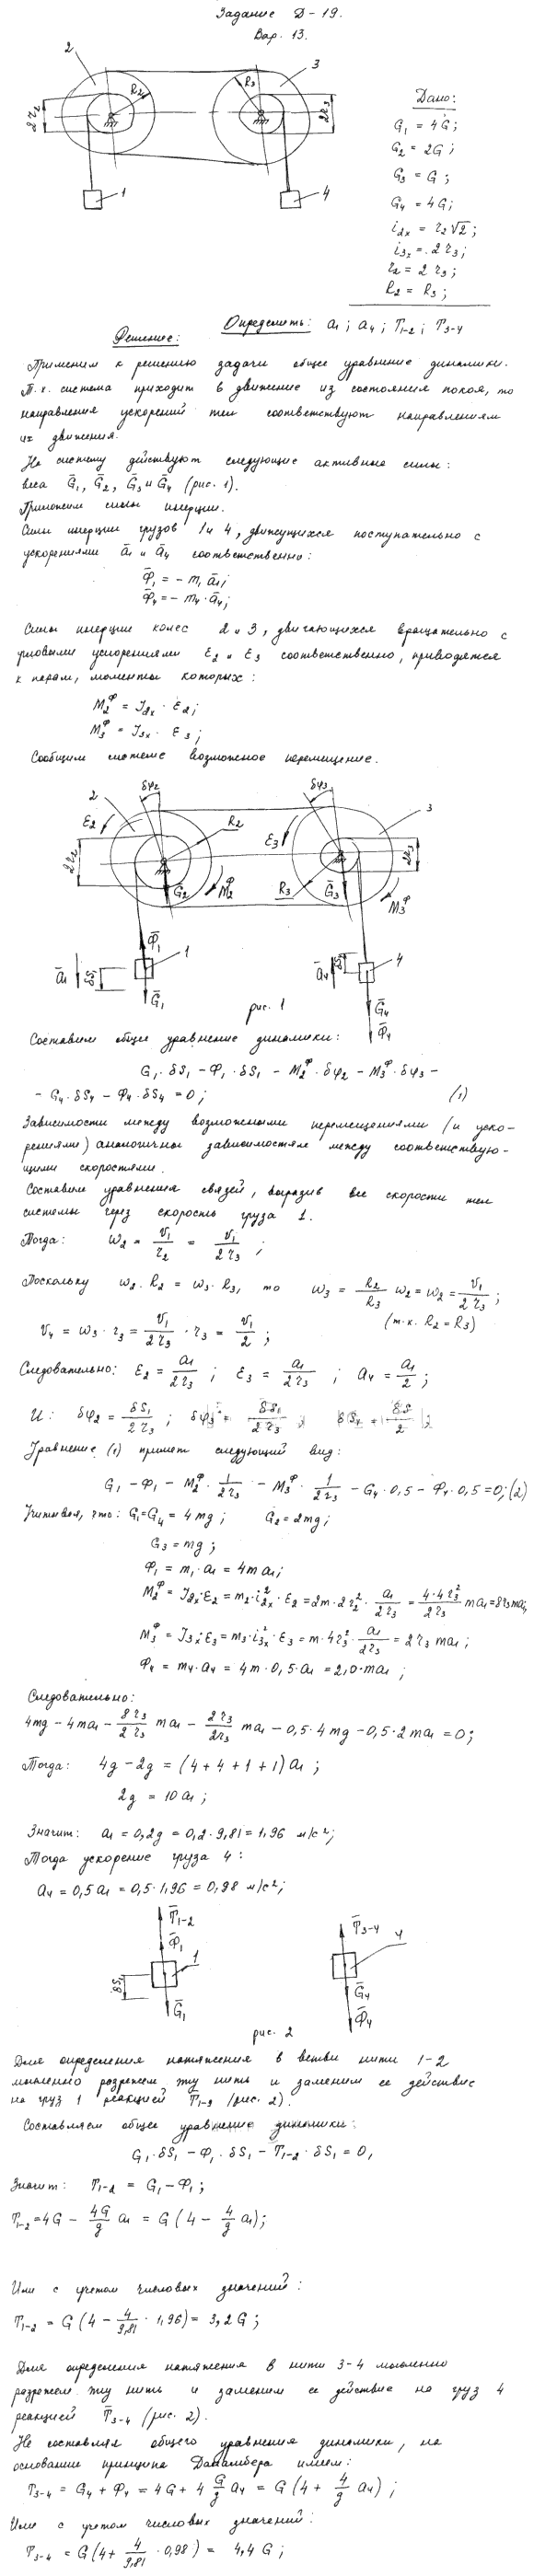 Задание Д-19.
Вар. 13.
2
3
R2
R3
2r2
2r3
1
4
Дано:
G1 = 4G;
G2 = 2G;
G3 = G;
G4 = 4G;
i2x = r2√2;
i3x = 2r3;
r2 = 2r3;
R2 = R3;
Определить: a1; a4; T1-2; T3-4
Решение:
Применим к решению задачи общее уравнение динамики.
Т.к. система приходит в движение из состояния покоя, то
направления ускорений тел соответствуют направлениям
их движения.
На систему действуют следующие активные силы:
веса G̅1, G̅2, G̅3 и G̅4 (рис. 1).
Приложим силы инерции.
Силы инерции грузов 1 и 4, движущихся поступательно с
ускорениями a̅1 и a̅4 соответственно:
Ф̅1 = - m1 a̅1;
Ф̅4 = - m4 · a̅4;
Силы инерции колес 2 и 3, двигающихся вращательно с
угловыми ускорениями ε2 и ε3 соответственно, приводятся
к парам, моменты которых:
M2ф = J2x · ε2;
M3ф = J3x · ε3;
Сообщим системе возможное перемещение.
2
δφ2
δφ3
3
ε2
R2
ε3
2r2
2r3
G̅2
M2ф
R3
G̅3
M3ф
Ф̅1
1
4
a̅1
δS1
a̅4
δS4
G̅1
G̅4
рис. 1
Ф̅4
Составим общее уравнение динамики:
G1 · δS1 - Ф1 · δS1 - M2ф · δφ2 - M3ф · δφ3 -
- G4 · δS4 - Ф4 · δS4 = 0; (1)
Зависимости между возможными перемещениями (и уско-
рениями) аналогичны зависимостям между соответствую-
щими скоростями.
Составим уравнения связей, выразив все скорости тел
системы через скорость груза 1.
Тогда: ω2 = v1/r2 = v1/2r3;
Поскольку ω2 · R2 = ω3 · R3, то ω3 = R2/R3 ω2 = ω2 = v1/2r3;
(т.к. R2 = R3)
v4 = ω3 · r3 = v1/2r3 · r3 = v1/2;
Следовательно: ε2 = a1/2r3; ε3 = a1/2r3; a4 = a1/2;
И: δφ2 = δS1/2r3; δφ3 = δS1/2r3; δS4 = δS1/2
Уравнение (1) примет следующий вид:
G1 - Ф1 - M2ф · 1/2r3 - M3ф · 1/2r3 - G4 · 0,5 - Ф4 · 0,5 = 0; (2)
Учитывая, что: G1 = G4 = 4mg; G2 = 2mg;
G3 = mg;
Ф1 = m1 · a1 = 4ma1;
M2ф = J2x · ε2 = m2 · i2x² · ε2 = 2m · 2r2² · a1/2r3 = 4·4r3²/2r3 ma1 = 8r3ma1;
M3ф = J3x · ε3 = m3 · i3x² · ε3 = m · 4r3² · a1/2r3 = 2r3 ma1;
Ф4 = m4 · a4 = 4m · 0,5 · a1 = 2,0 · ma1;
Следовательно:
4mg - 4ma1 - 8r3/2r3 ma1 - 2r3/2r3 ma1 - 0,5 · 4mg - 0,5 · 2ma1 = 0;
Тогда: 4g - 2g = (4 + 4 + 1 + 1) a1;
2g = 10a1;
Значит: a1 = 0,2g = 0,2 · 9,81 = 1,96 м/с²;
Тогда ускорение груза 4:
a4 = 0,5a1 = 0,5 · 1,96 = 0,98 м/с²;
T̅1-2
T̅3-4
Ф̅1
1
4
δS1
G̅1
G̅4
Ф̅4
рис. 2
Для определения натяжения в ветви нити 1-2
мысленно разрежем эту нить и заменим ее действие
на груз 1 реакцией T̅1-2 (рис. 2).
Составляем общее уравнение динамики:
G1 · δS1 - Ф1 · δS1 - T1-2 · δS1 = 0,
Значит: T1-2 = G1 - Ф1;
T1-2 = 4G - 4G/g a1 = G(4 - 4/g a1);
Или с учетом числовых значений:
T1-2 = G(4 - 4/9,81 · 1,96) = 3,2G;
Для определения натяжения в нити 3-4 мысленно
разрежем эту нить и заменим ее действие на груз 4
реакцией T̅3-4 (рис. 2).
Не составляя общего уравнения динамики, на
основании принципа Даламбера имеем:
T3-4 = G4 + Ф4 = 4G + 4 G/g a4 = G(4 + 4/g a4);
Или с учетом числовых значений:
T3-4 = G(4 + 4/9,81 · 0,98) = 4,4G;